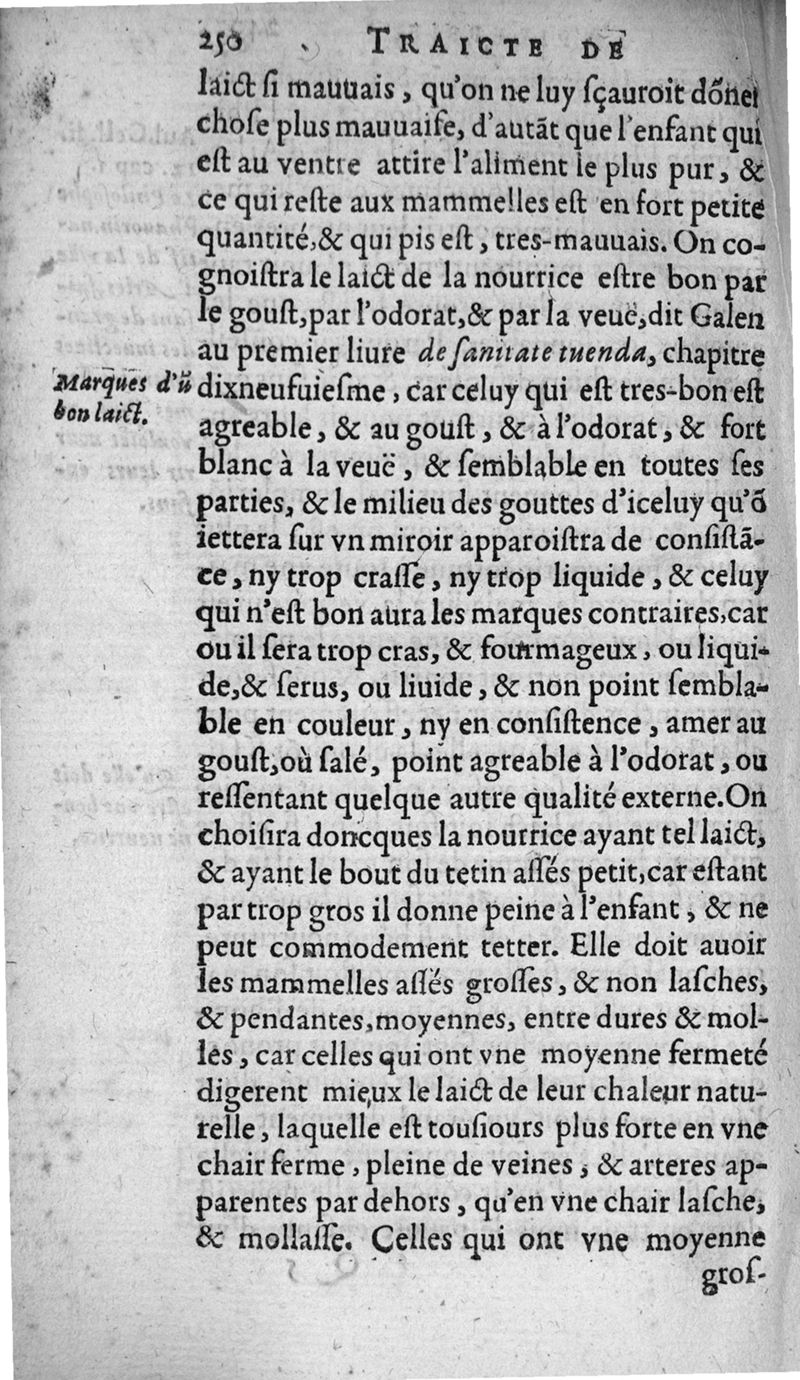 250 TRAICTE DE
laict ſi mauuais, qu'on ne luy ſçauroit dõner
choſe plus mauuaiſe, d'autãt que l'enfant qui
eſt au ventre attire l'aliment le plus pur, &
ce qui reſte aux mammelles eſt en fort petite
quantité,& qui pis eſt, tres-mauuais. On co-
gnoiſtra le laict de la nourrice eſtre bon par
le gouſt,par l'odorat,& par la veuë,dit Galen
au premier liure de ſanitate tuenda, chapitre
Marques d'ũ
bon laict.
dixneufuieſme, car celuy qui eſt tres-bon eſt
agreable, & au gouſt, & à l'odorat, & fort
blanc à la veuë, & ſemblable en toutes ſes
parties, & le milieu des gouttes d'iceluy qu'õ
iettera ſur vn miroir apparoiſtra de conſiſtã-
ce, ny trop craſſe, ny trop liquide, & celuy
qui n'eſt bon aura les marques contraires,car
ou il ſera trop cras, & fourmageux, ou liqui-
de,& ſerus, ou liuide, & non point ſembla-
ble en couleur, ny en conſiſtence, amer au
gouſt,où ſalé, point agreable à l'odorat, ou
reſſentant quelque autre qualité externe.On
choiſira doncques la nourrice ayant tel laict,
& ayant le bout du tetin aſſés petit,car eſtant
par trop gros il donne peine à l'enfant, & ne
peut commodement tetter. Elle doit auoir
les mammelles aſſés groſſes, & non laſches,
& pendantes,moyennes, entre dures & mol-
les, car celles qui ont vne moyenne fermeté
digerent mieux le laict de leur chaleur natu-
relle, laquelle eſt touſiours plus forte en vne
chair ferme, pleine de veines, & arteres ap-
parentes par dehors, qu'en vne chair laſche,
& mollaſſe. Celles qui ont vne moyenne
groſ-